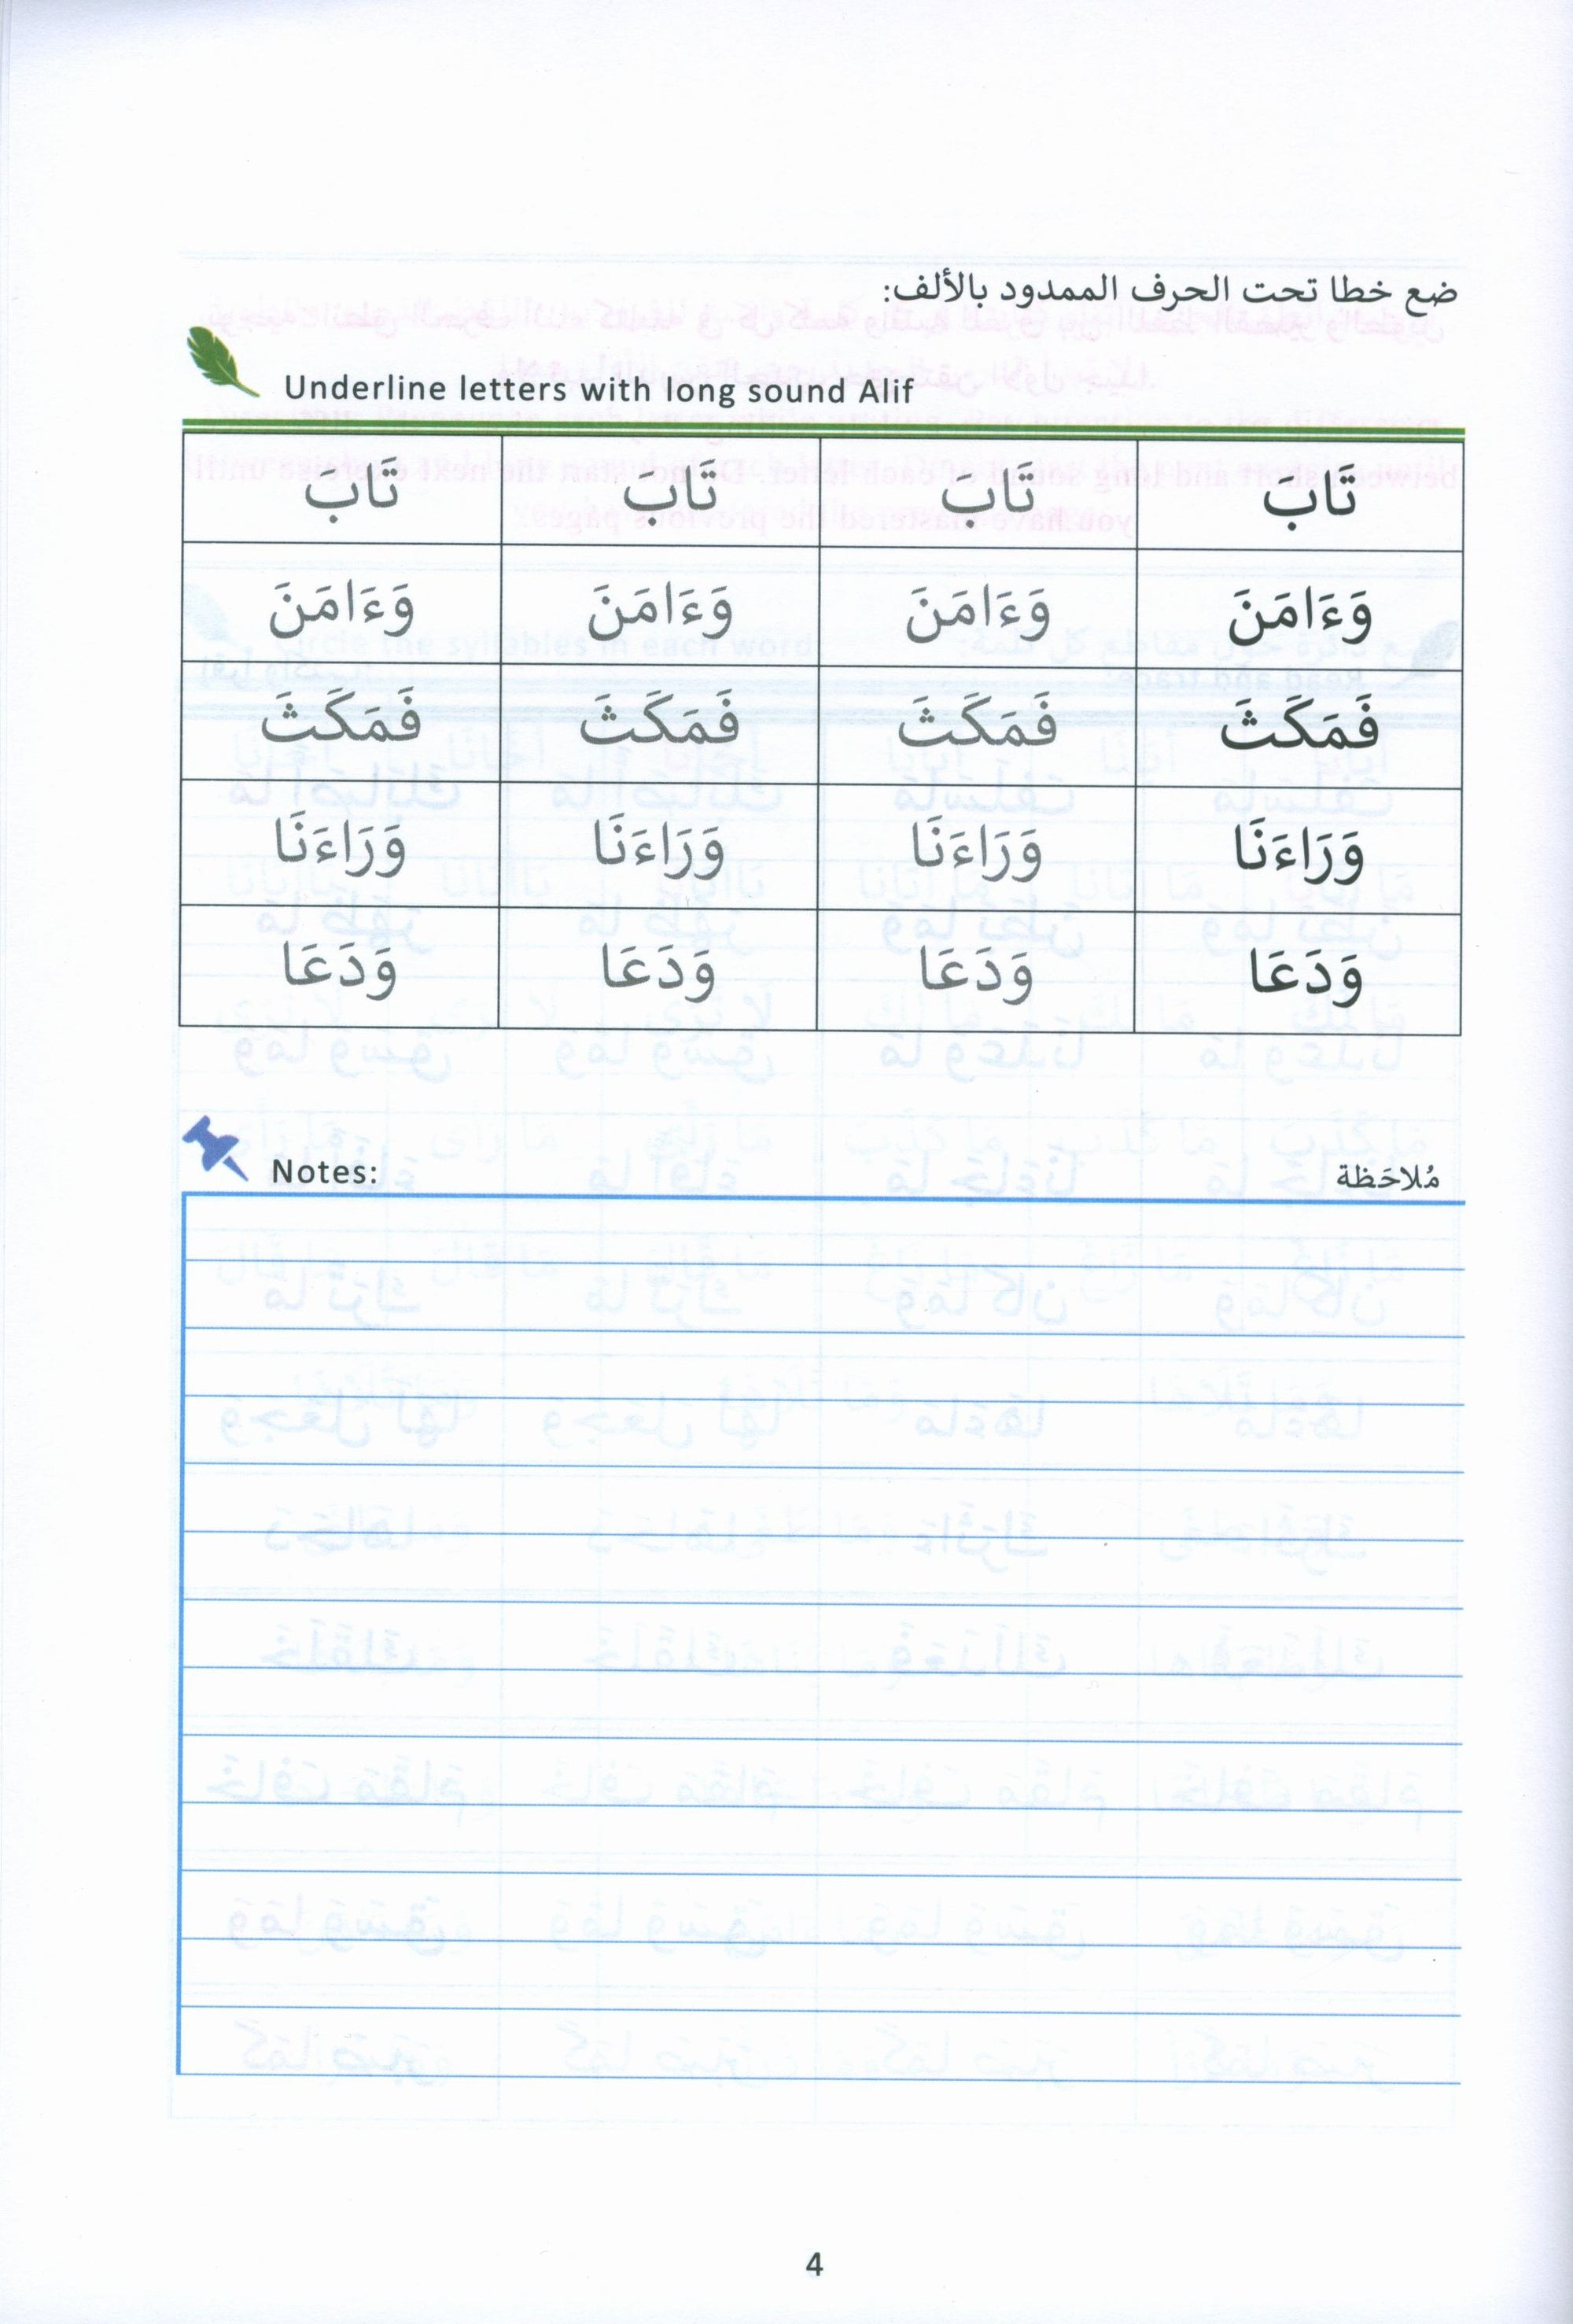 ضع خطا تحت الحرف الممدود بالألف:
Underline letters with long sound Alif
تَابَ تَابَ تَابَ تَابَ
وَءَامَنَ وَءَامَنَ وَءَامَنَ وَءَامَنَ
فَمَكَثَ فَمَكَثَ فَمَكَثَ فَمَكَثَ
وَرَاءَنَا وَرَاءَنَا وَرَاءَنَا وَرَاءَنَا
وَدَعَا وَدَعَا وَدَعَا وَدَعَا
Notes: مُلاحَظة
4